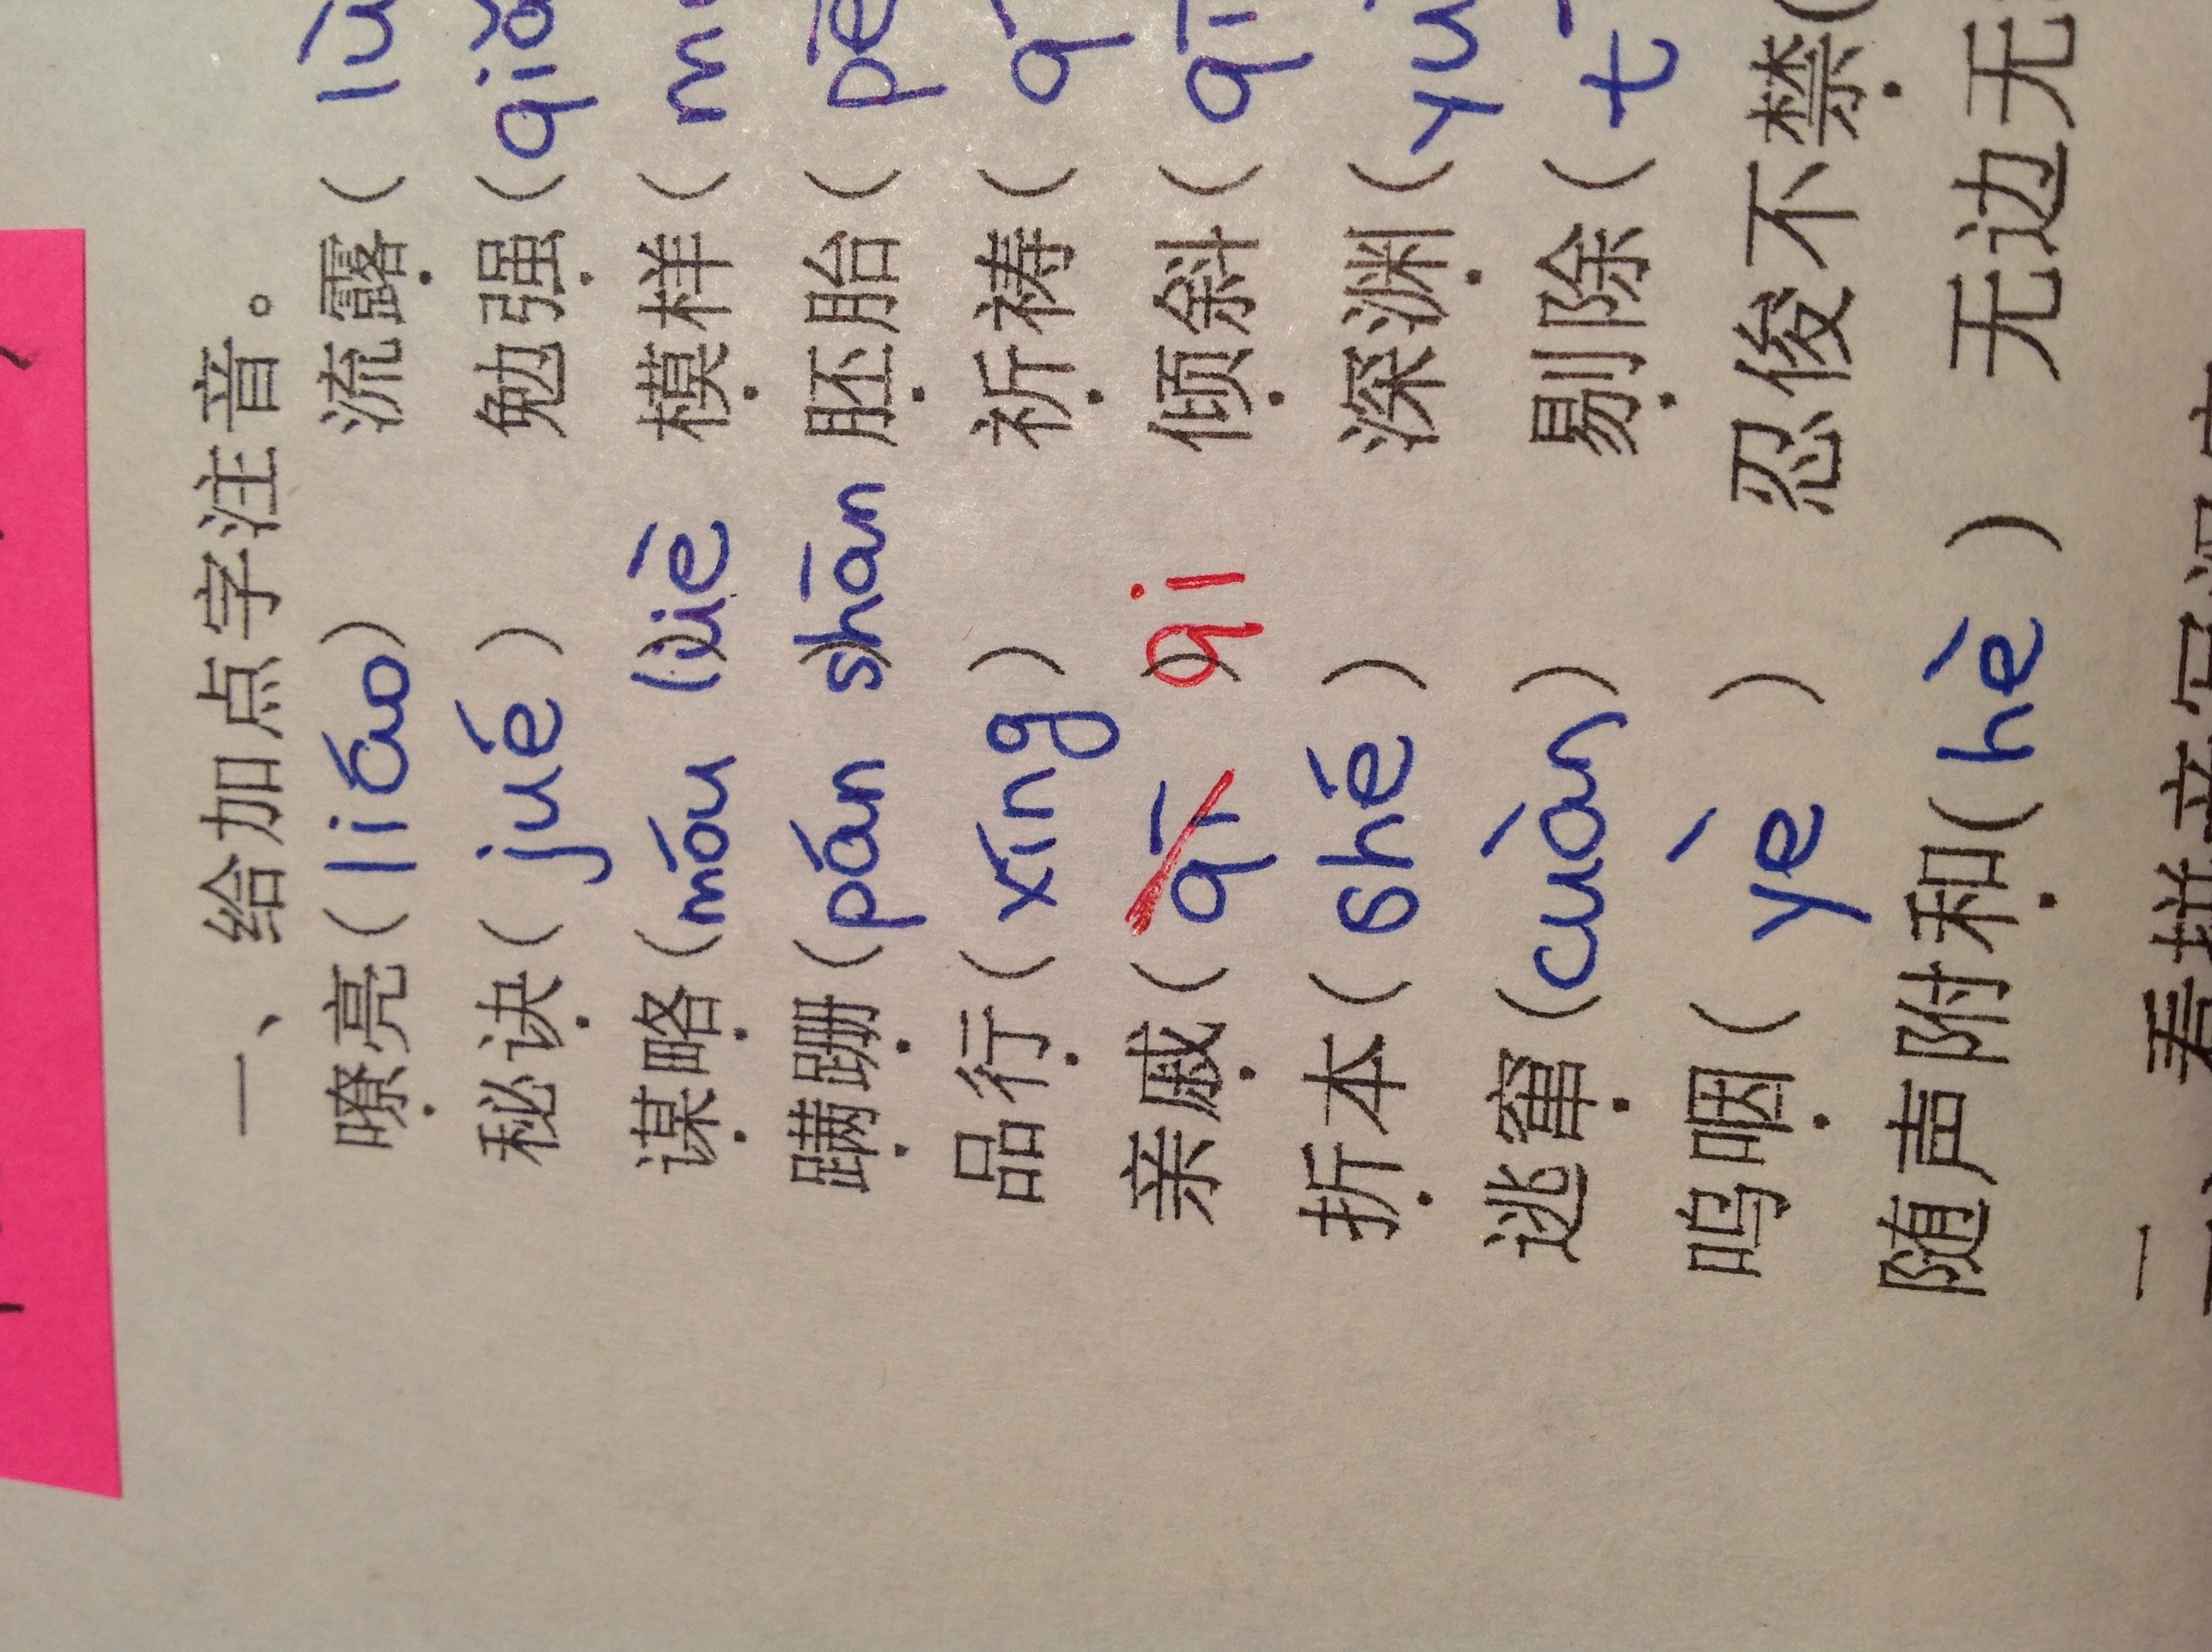 一、给加点字注音。
嘹亮(liáo) 流露( lù
秘诀( jué ) 勉强(qiǎ
谋略(móu lüè) 模样( m
蹒跚(pán shān) 胚胎( pē
品行( xíng ) 祈祷( q
亲戚( qī ) qi 倾斜( qī
折本( shé ) 深渊(yu
逃窜(cuàn) 剔除( t
呜咽( yè ) 忍俊不禁(
随声附和( hè ) 无边无
二、看拼音写汉字